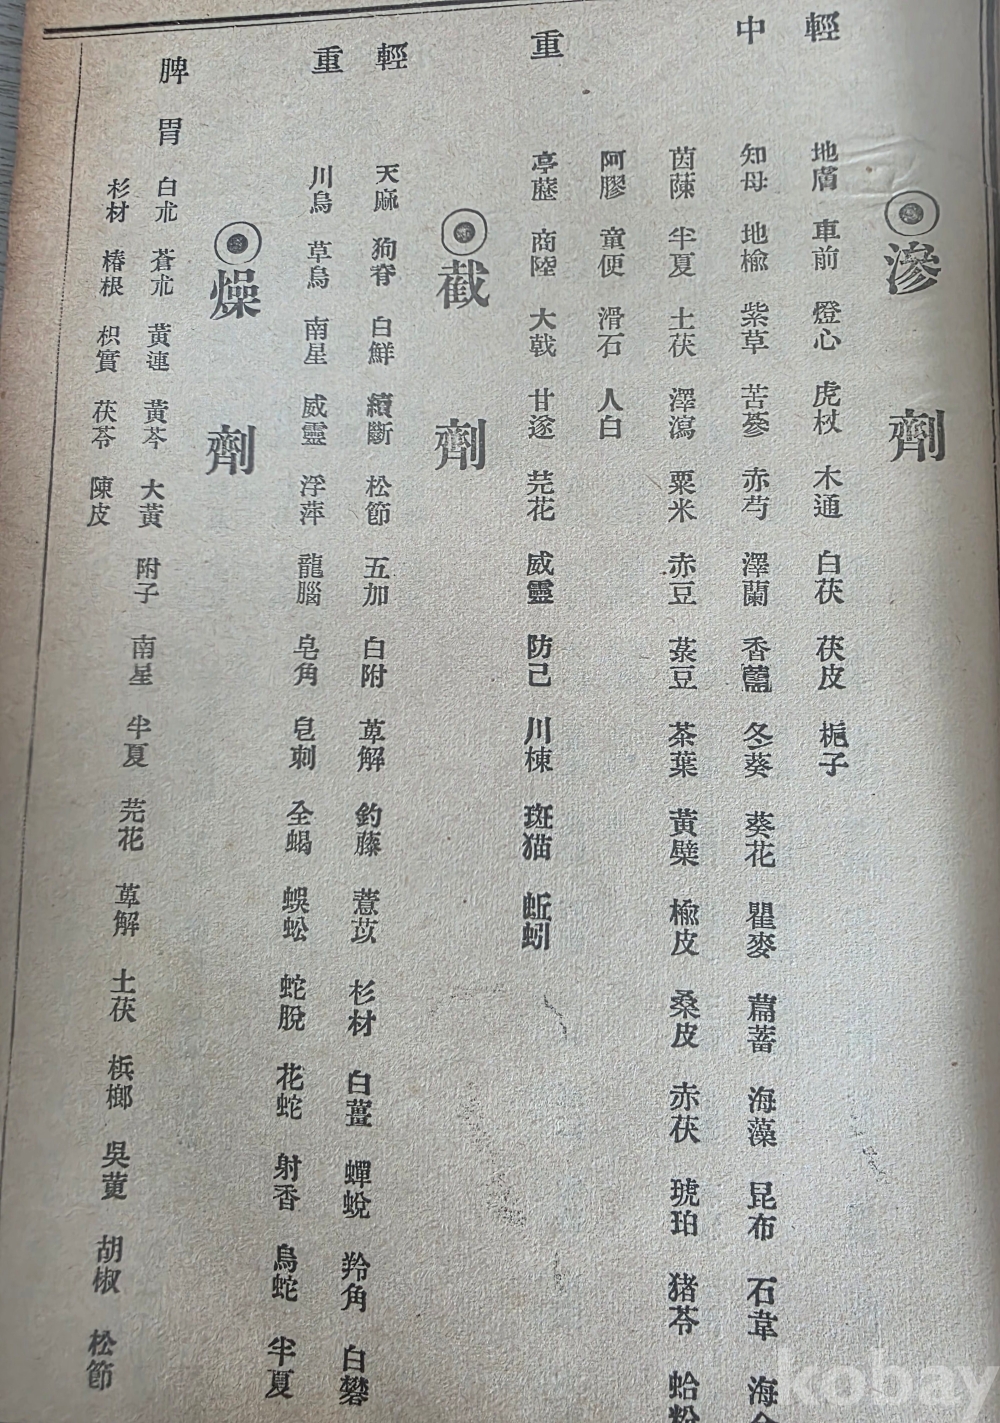 滲劑
輕 地膚 車前 燈心 虎杖 木通 白茯 茯皮 梔子
中 知母 地楡 紫草 苦蔘 赤芍 澤蘭 香薷 冬葵 葵花 瞿麥 萹蓄 海藻 昆布 石韋 海
茵蔯 半夏 土茯 澤瀉 粟米 赤豆 菉豆 茶葉 黃檗 楡皮 桑皮 赤茯 琥珀 猪苓 蛤粉
阿膠 童便 滑石 人白
重 葶藶 商陸 大戟 甘遂 芫花 威靈 防己 川楝 斑猫 蚯蚓
截劑
輕 天麻 狗脊 白鮮 續斷 松節 五加 白附 萆解 釣藤 薏苡 杉材 白薑 蟬蛻 羚角 白礬
重 川烏 草烏 南星 威靈 浮萍 龍腦 皂角 皂刺 全蝎 蜈蚣 蛇脫 花蛇 射香 烏蛇 半夏
燥劑
脾胃 白朮 蒼朮 黃連 黃芩 大黃 附子 南星 半夏 芫花 萆解 土茯 梹榔 吳萸 胡椒 松節
杉材 椿根 枳實 茯苓 陳皮
kobay